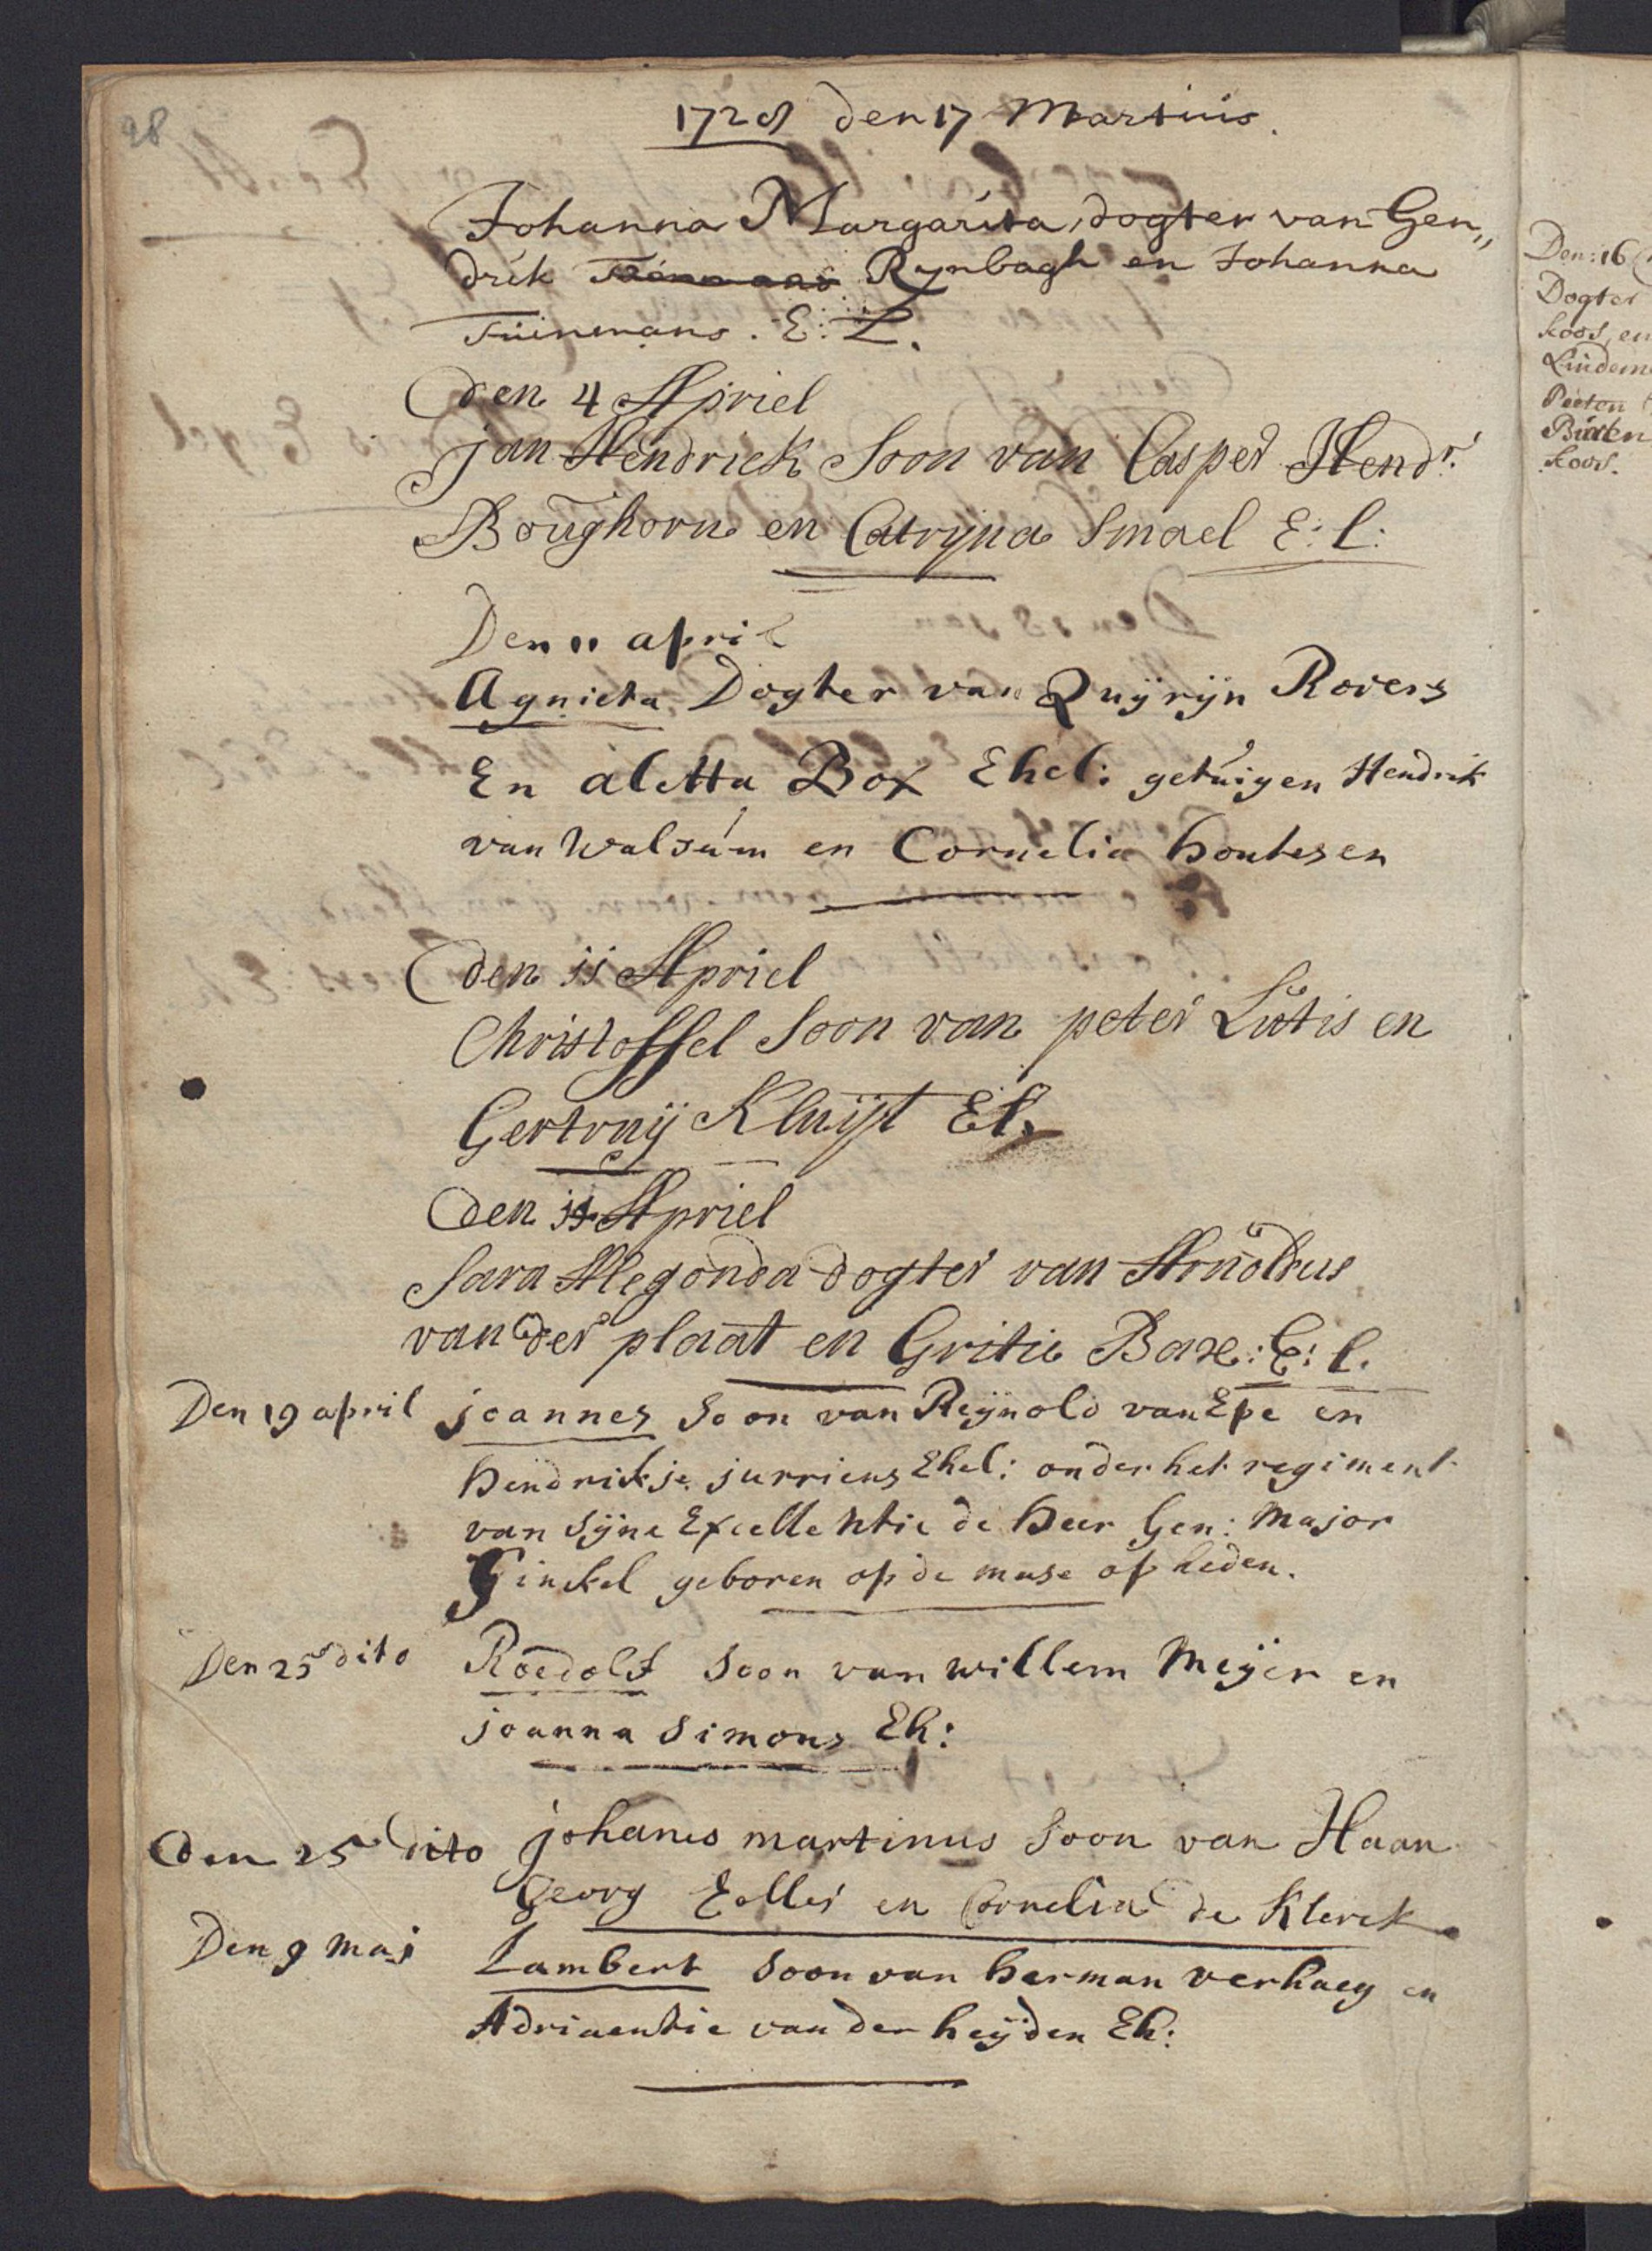 98
1728 den 17 Martius.
Johanna Margarita, dogter van Gen„
drik Rynbagh en Johanna
Tüinemans. E: L.
den 4 Apriel
jan Hendrick Soon van Casper Hendr:
Boughorn en Catryna Smael E: l:
Den 11 april
Agnieta Dogter van Quÿrÿn Rovers
En aletta Box Ehel: getuigen Hendrik
van Walsum en Cornelia houtesen
den 11 Apriel
Christoffel Soon van peter Lutis en
Gertruÿ Kluijt El.
den 11 Apriel
Sara Alegonda dogter van Arnoldus
van der plaat en Gritie Baxe: E: l.
Den 19 april joannes Soon van Reÿnold van Epe en
hendrikje jurriens Ehel: onder het regiment
van Sÿne Excellentie de heer Gen: Major
Ginckel geboren op de mase op heden.
Den 25 dito Roedolf Soon van willem Meÿer en
joanna Simons Eh:
den 25 dito johanes martinus Soon van Haan
Georg Eller en Cornelia de Klerck
Den 9 maj Lambert Soon van herman verhaeg en
Adriaentie van der heÿden Eh:
Den: 16
Dogter
koos, en
Lindem
Peeton
Buiten
koos.